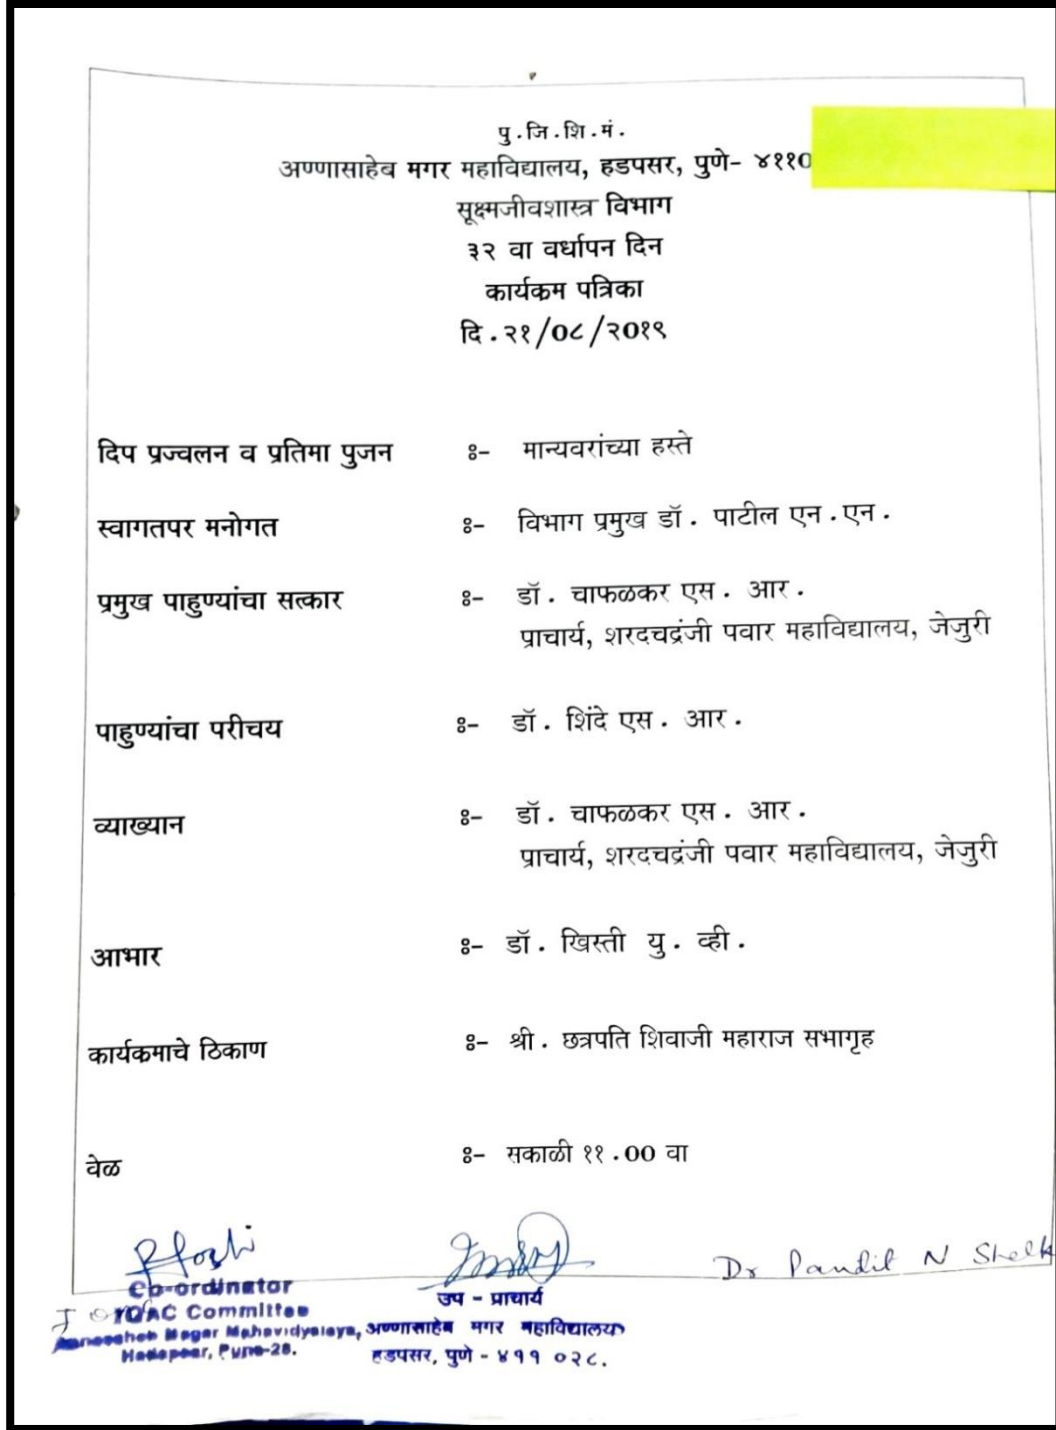 पु.जि.शि.मं.
अण्णासाहेब मगर महाविद्यालय, हडपसर, पुणे- ४११0
सूक्ष्मजीवशास्त्र विभाग
३२ वा वर्धापन दिन
कार्यकम पत्रिका
दि.२१/0८/२0१९
दिप प्रज्वलन व प्रतिमा पुजन ः- मान्यवरांच्या हस्ते
स्वागतपर मनोगत ः- विभाग प्रमुख डॉ. पाटील एन.एन.
प्रमुख पाहुण्यांचा सत्कार ः- डॉ. चाफळकर एस. आर.
प्राचार्य, शरदचद्रंजी पवार महाविद्यालय, जेजुरी
पाहुण्यांचा परीचय ः- डॉ. शिंदे एस. आर.
व्याख्यान ः- डॉ. चाफळकर एस. आर.
प्राचार्य, शरदचद्रंजी पवार महाविद्यालय, जेजुरी
आभार ः- डॉ. खिस्ती यु. व्ही.
कार्यकमाचे ठिकाण ः- श्री. छत्रपति शिवाजी महाराज सभागृह
वेळ ः- सकाळी ११.00 वा
Dr Pandit N Shelk
Co-ordinator
IQAC Committee
Annasaheb Magar Mahavidyalaya,
Hadapsar, Pune-28.
उप - प्राचार्य
अण्णासाहेब मगर महाविद्यालय
हडपसर, पुणे - ४११ ०२८.